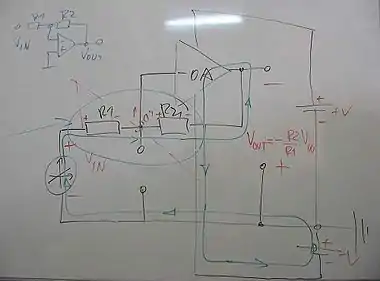 R1 R2
VIN
VOUT
0A
R1 R2
+ - + -
VIN
0
VOUT = - R2/R1 VIN
+V
-V